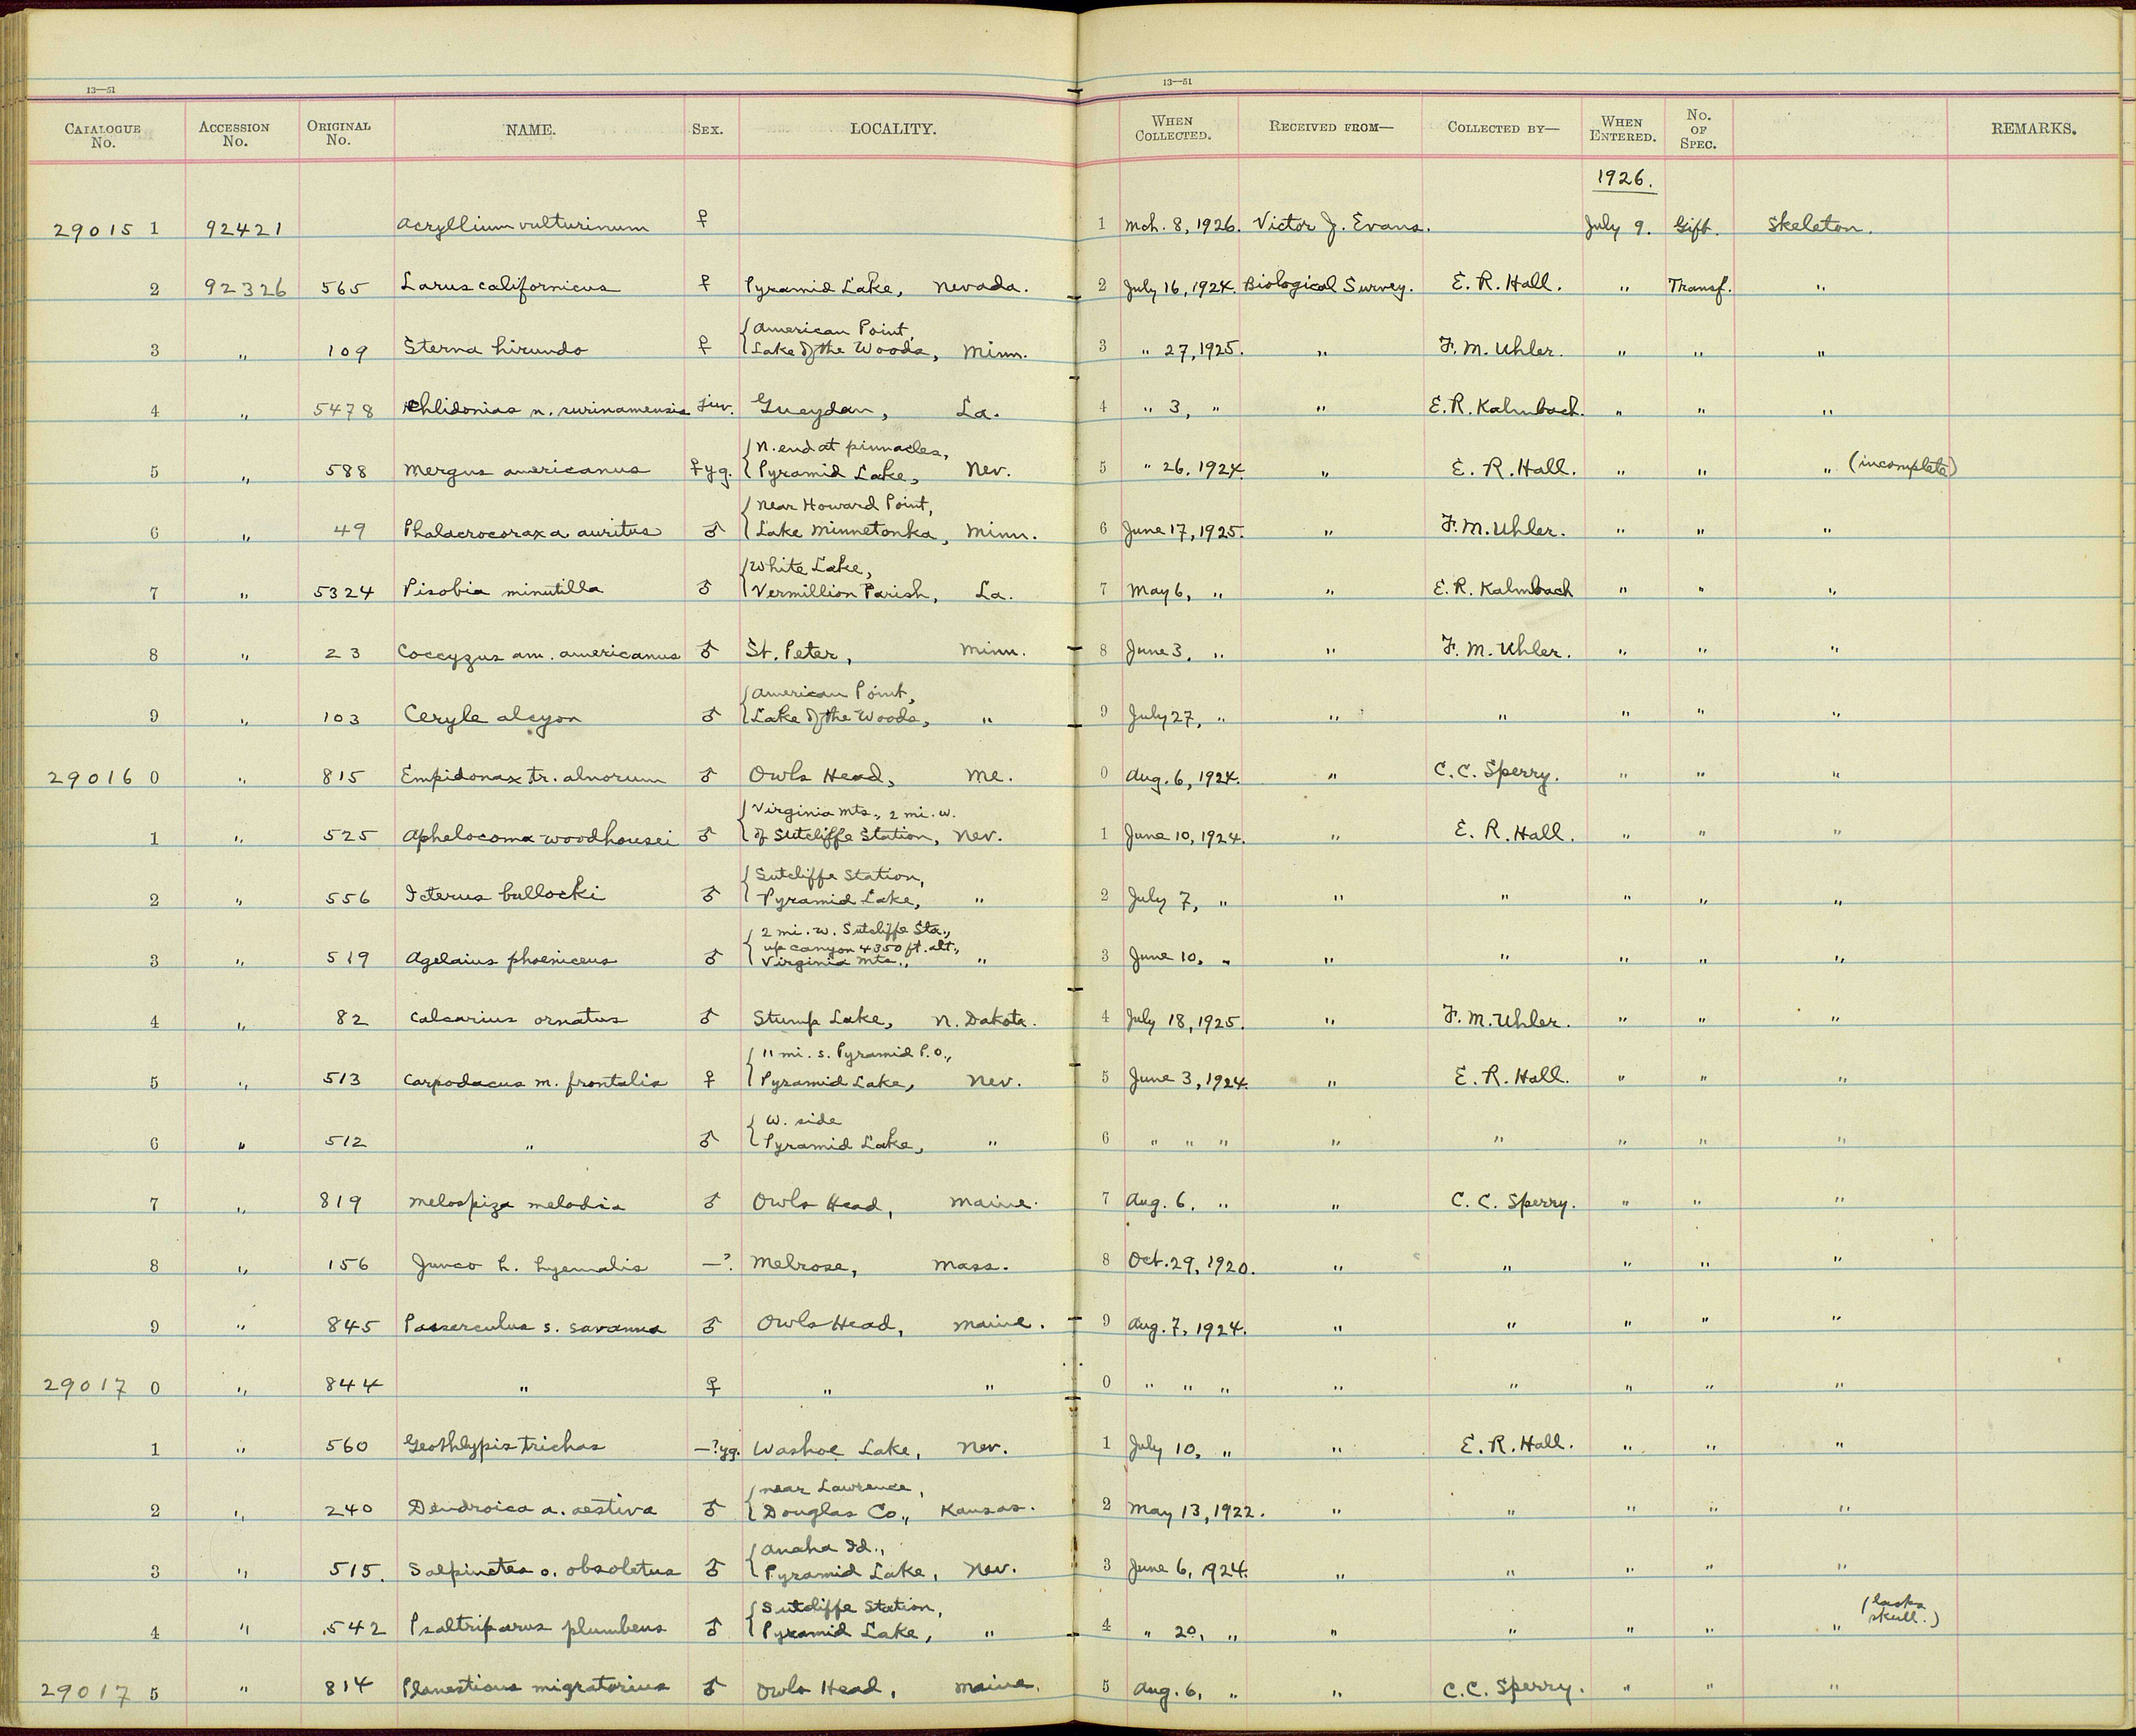 13—51 13—51
CATALOGUE No. ACCESSION No. ORIGINAL No. NAME. SEX. LOCALITY. WHEN COLLECTED. RECEIVED FROM— COLLECTED BY— WHEN ENTERED. No. OF SPEC. REMARKS.
1926.
29015 1 92421 Acryllium vulturinum ♀ 1 Mch. 8, 1926. Victor J. Evans. July 9. Gift. Skeleton.
2 92326 565 Larus californicus ♀ Pyramid Lake, Nevada. 2 July 16, 1924. Biological Survey. E. R. Hall. " Transf. "
American Point,
3 " 109 Sterna hirundo ♀ Lake of the Woods, Minn. 3 " 27, 1925. " F. M. Uhler. " " "
4 " 5478 Chlidonias n. surinamensis juv. Gueydan, La. 4 " 3, " " E. R. Kalmbach. " " "
N. end at pinnacles,
5 " 588 Mergus americanus ♀ yg. Pyramid Lake, Nev. 5 " 26, 1924. " E. R. Hall. " " " (incomplete)
Near Howard Point,
6 " 49 Phalacrocorax a. auritus ♂ Lake Minnetonka, Minn. 6 June 17, 1925. " F. M. Uhler. " " "
White Lake,
7 " 5324 Pisobia minutilla ♂ Vermillion Parish, La. 7 May 6, " " E. R. Kalmbach " " "
8 " 23 Coccyzus am. americanus ♂ St. Peter, Minn. 8 June 3, " " F. M. Uhler. " " "
American Point,
9 " 103 Ceryle alcyon ♂ Lake of the Woods, " 9 July 27, " " " " " "
29016 0 " 815 Empidonax tr. alnorum ♂ Owls Head, Me. 0 Aug. 6, 1924. " C. C. Sperry. " " "
Virginia Mts., 2 mi. w.
1 " 525 Aphelocoma woodhousei ♂ of Sutcliffe Station, Nev. 1 June 10, 1924. " E. R. Hall. " " "
Sutcliffe Station,
2 " 556 Icterus bullocki ♂ Pyramid Lake, " 2 July 7, " " " " " "
2 mi. w. Sutcliffe Sta.,
up canyon 4350 ft. alt.,
3 " 519 Agelaius phoeniceus ♂ Virginia Mts., " 3 June 10, " " " " " "
4 " 82 Calcarius ornatus ♂ Stump Lake, N. Dakota. 4 July 18, 1925. " F. M. Uhler. " " "
11 mi. s. Pyramid P.O.,
5 " 513 Carpodacus m. frontalis ♀ Pyramid Lake, Nev. 5 June 3, 1924. " E. R. Hall. " " "
W. side
6 " 512 " ♂ Pyramid Lake, " 6 " " " " " " " "
7 " 819 Melospiza melodia ♂ Owls Head, Maine. 7 Aug. 6, " " C. C. Sperry. " " "
8 " 156 Junco h. hyemalis —? Melrose, Mass. 8 Oct. 29, 1920. " " " " "
9 " 845 Passerculus s. savanna ♂ Owls Head, Maine. 9 Aug. 7, 1924. " " " " "
29017 0 " 844 " ♀ " " 0 " " " " " " " "
1 " 560 Geothlypis trichas —? yg. Washoe Lake, Nev. 1 July 10, " " E. R. Hall. " " "
near Lawrence,
2 " 240 Dendroica a. aestiva ♂ Douglas Co., Kansas. 2 May 13, 1922. " " " " "
Anaha Id.,
3 " 515. Salpinctes o. obsoletus ♂ Pyramid Lake, Nev. 3 June 6, 1924. " " " " "
Sutcliffe Station,
4 " 542 Psaltriparus plumbeus ♂ Pyramid Lake, " 4 " 20, " " " " " " (lacks skull.)
29017 5 " 814 Planesticus migratorius ♂ Owls Head, Maine. 5 Aug. 6, " " C. C. Sperry. " " "